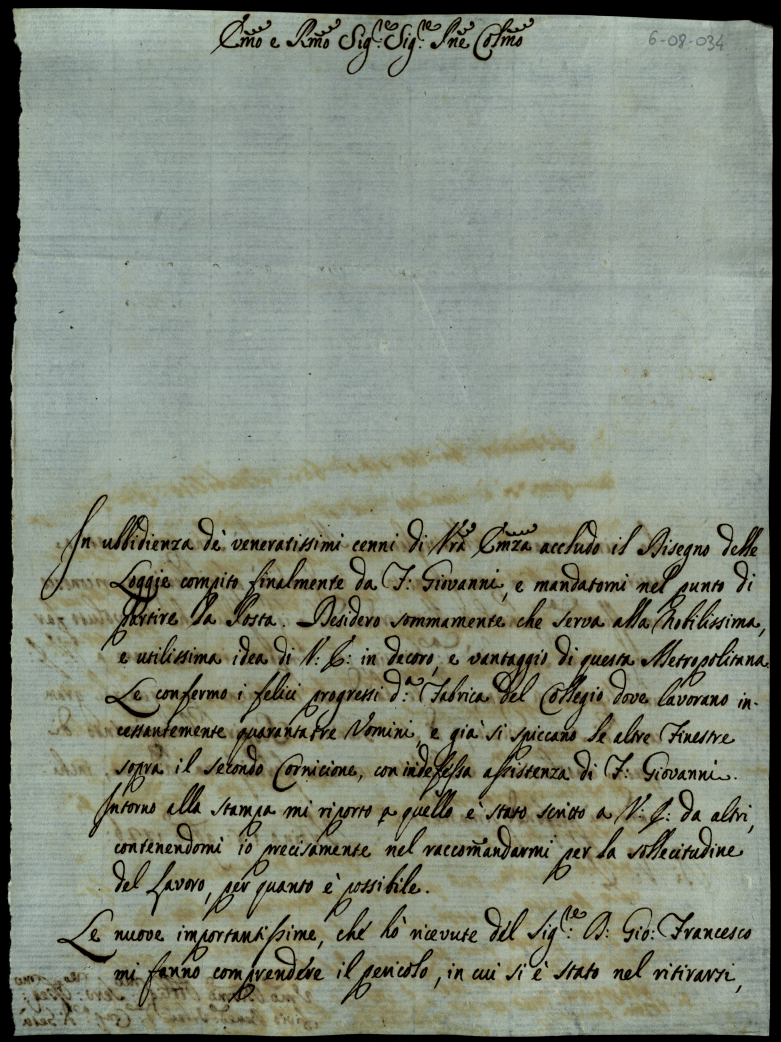 Emo e Rmo Sigre: Sigre: Pne Colmo
6-08-034
In ubbidienza de' veneratissimi cenni di Vra Emza accludo il Disegno delle
Loggie compito finalmente da F: Giovanni, e mandatomi nel punto di
partire la Posta. Desidero sommamente che serva alla Nobilissima,
e utilissima idea di V: E: in decoro, e vantaggio di questa Metropolitana
Le confermo i felici progressi da: Fabrica del Collegio dove lavorano in-
cessantemente quarantatre Uomini, e già si spiccano le altre Finestre
sopra il secondo Cornicione, con indefessa assistenza di F: Giovanni.
Intorno alla stampa mi riporto a quello è stato scritto a V: E: da altri,
contenendomi io precisamente nel raccomandarmi per la sollecitudine
del Lavoro, per quanto è possibile.
Le nuove importantissime, che hò ricevute del Sigre: D: Gio: Francesco
mi fanno comprendere il pericolo, in cui si è stato nel ritirarsi,